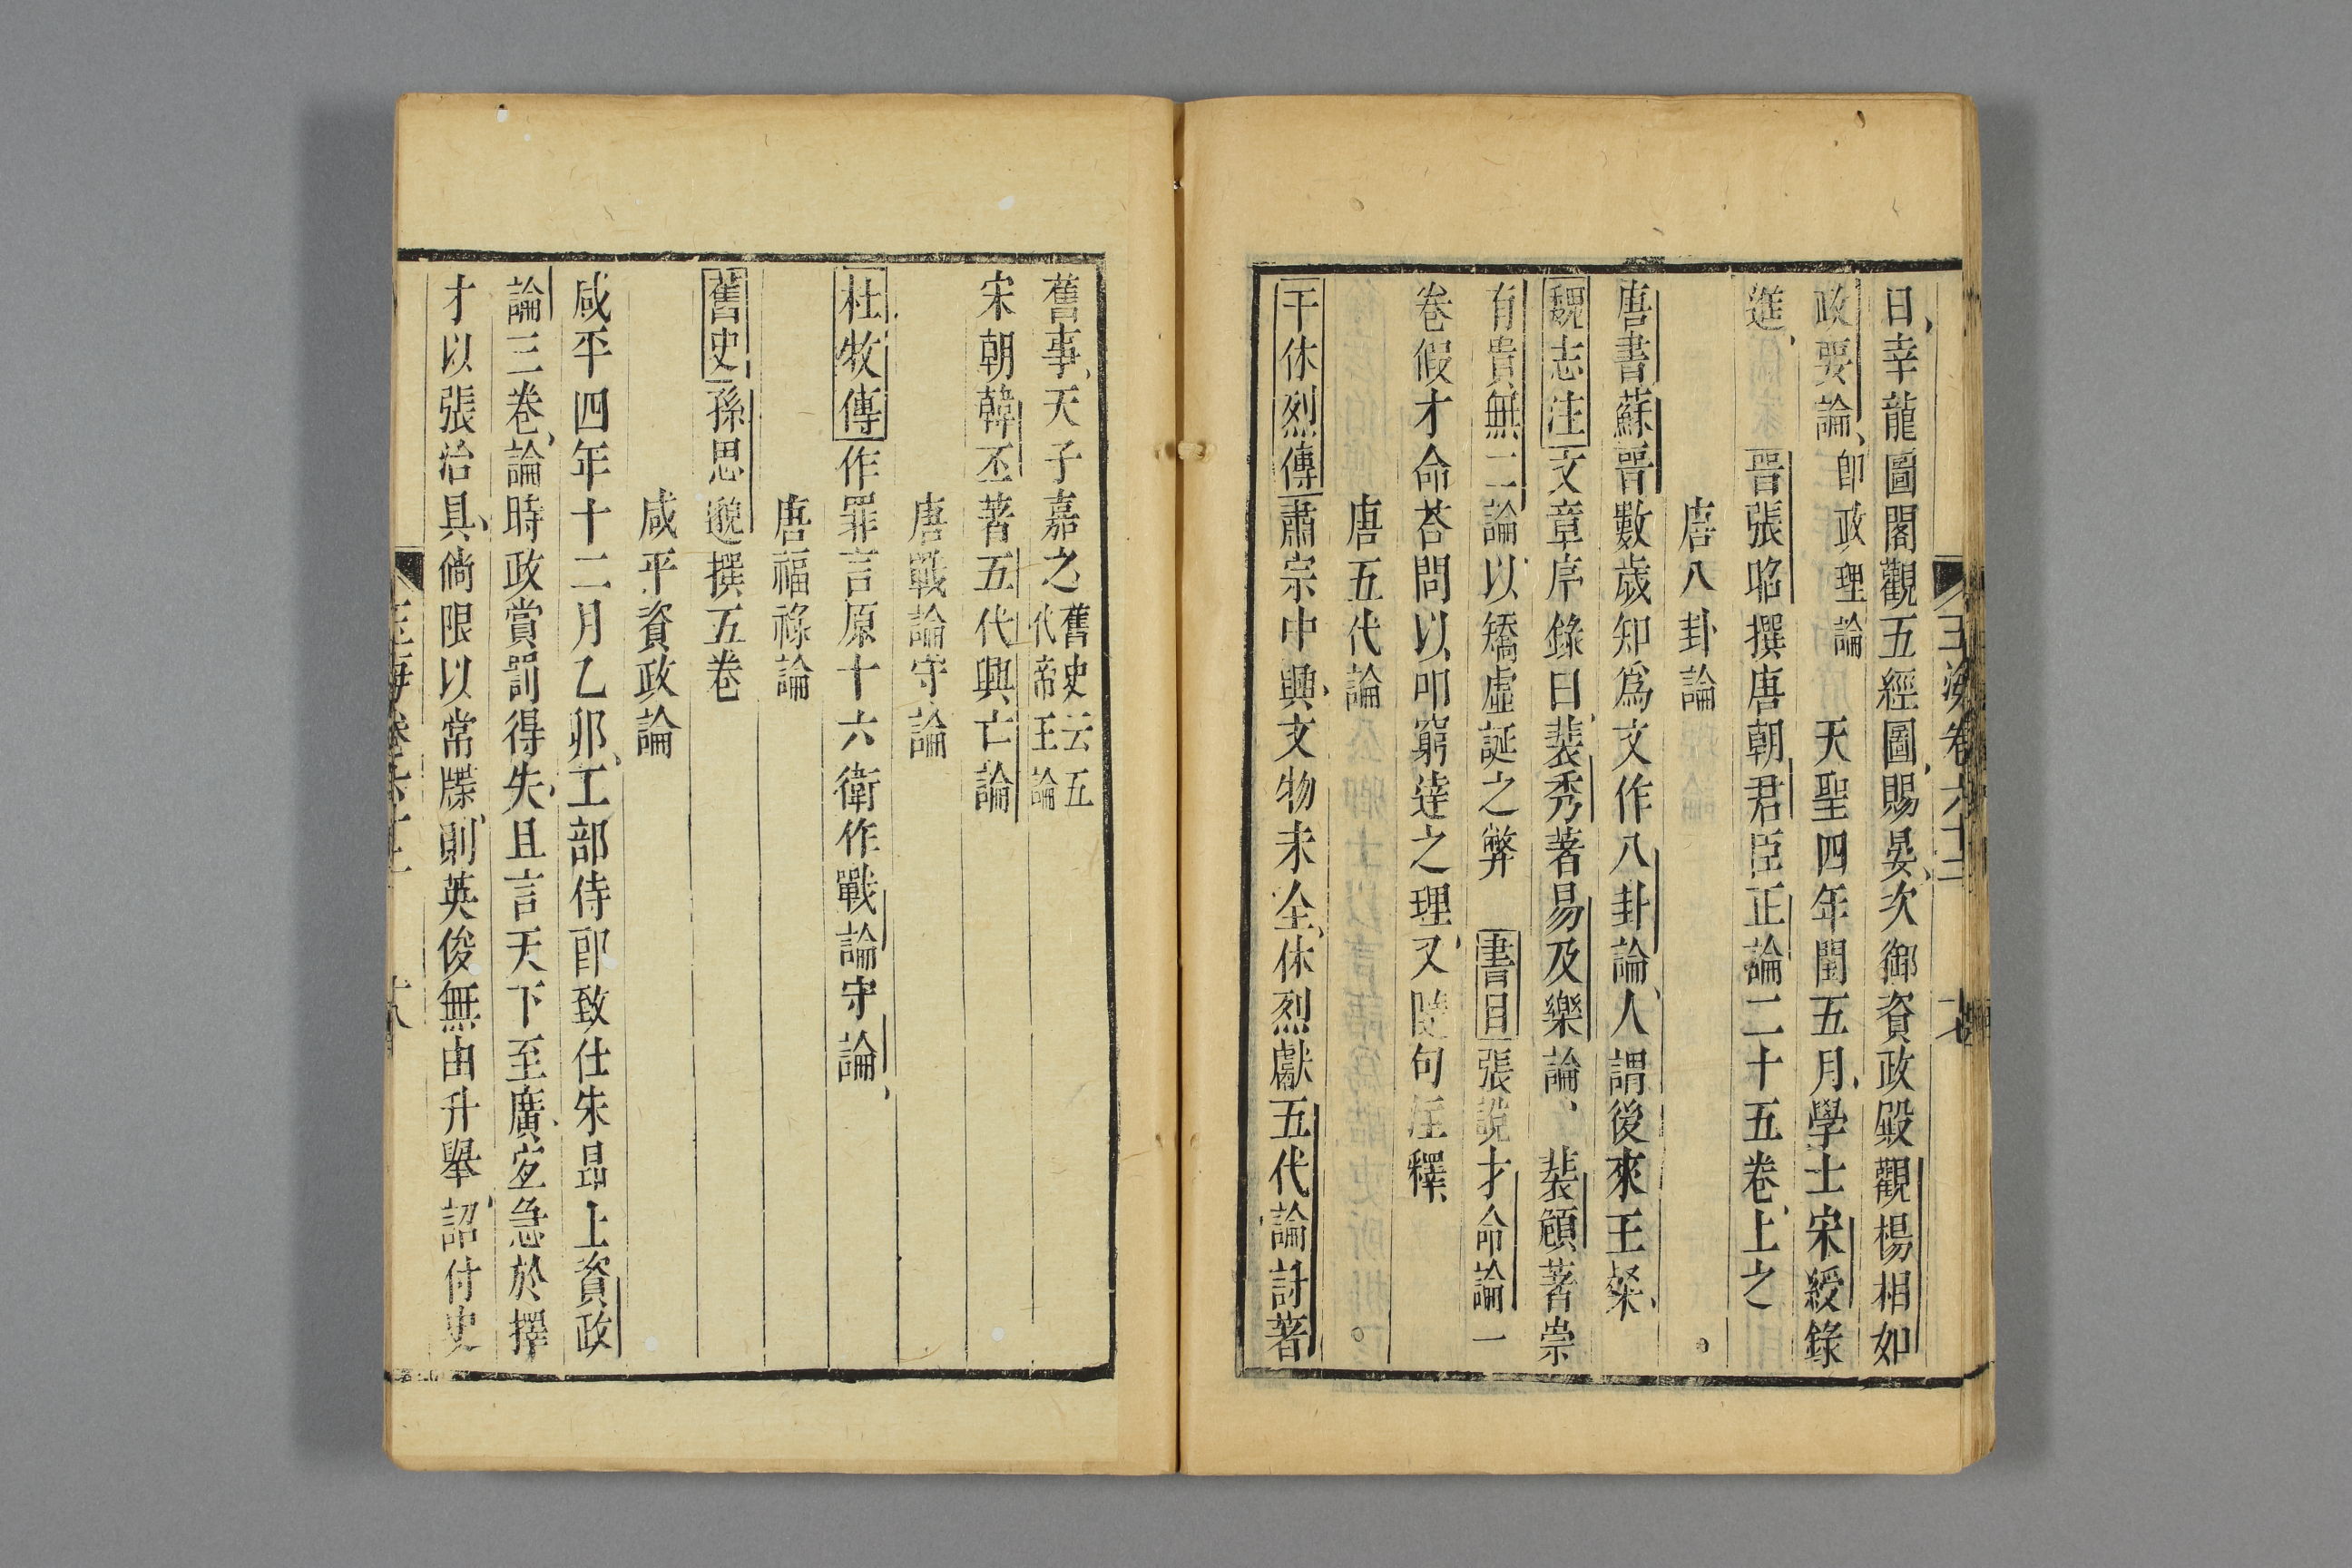 玉海卷六十二
日幸龍圖閣觀五經圖賜晏次御資政殿觀楊相如
政要論即政理論 天聖四年閏五月學士宋綬錄
進 晉張昭撰唐朝君臣正論二十五卷上之
唐八卦論
唐書蘇晉數歲知爲文作八卦論人謂後來王粲
魏志注文章序錄曰裴秀著易及樂論 裴頠著崇
有貴無二論以矯虛誕之弊 書目張說才命論一
卷假才命荅問以叩窮達之理又隨句注釋
唐五代論
于休烈傳肅宗中興文物未全休烈獻五代論討著
舊事天子嘉之舊史云五代帝王論
宋朝韓丕著五代興亡論
唐戰論守論
杜牧傳作罪言原十六衛作戰論守論
唐福祿論
舊史孫思邈撰五卷
咸平資政論
咸平四年十二月乙卯工部侍郎致仕朱昂上資政
論三卷論時政賞罰得失且言天下至廣宐急於擇
才以張治具倘限以常牒則英俊無由升舉詔付史
玉海卷六十二 十八